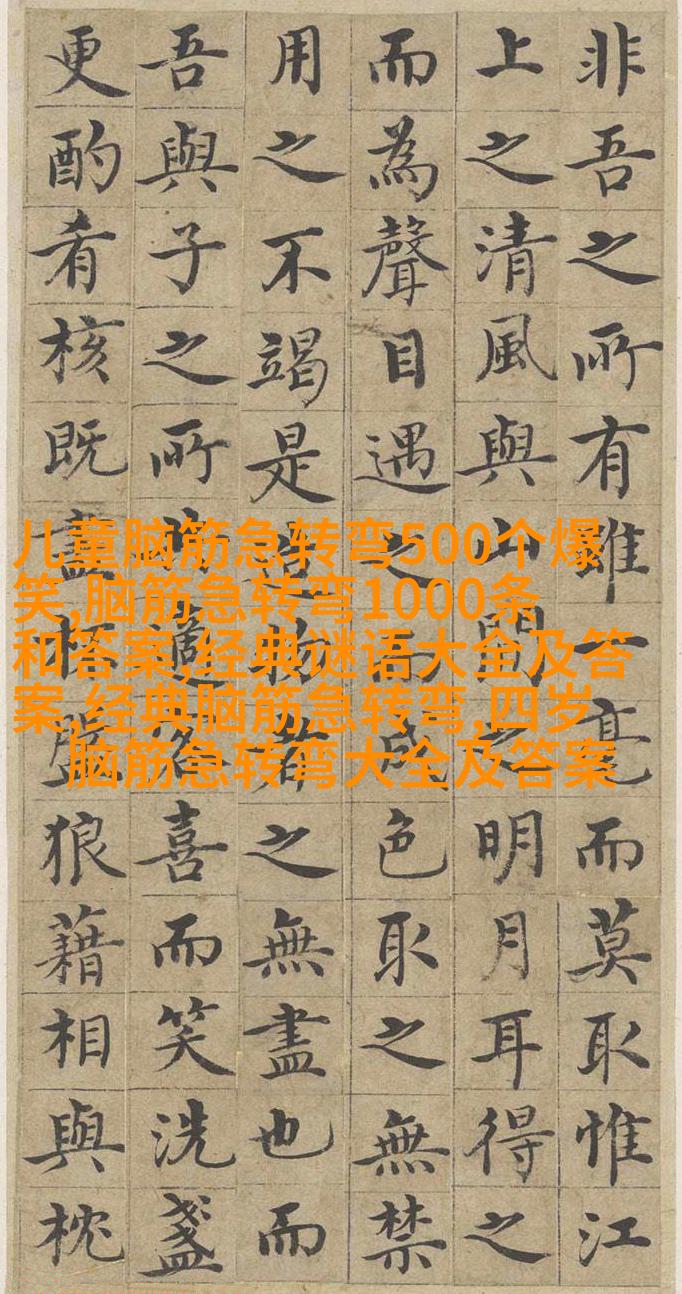 非吾之所有雖一毫而莫取惟江
上之清風與山間之明月耳得之
而為聲目遇之而成色取之無禁
用之不竭是造物者之無盡也而
吾與子之所適客喜而笑洗盞
更酌肴核既盡杯盤狼藉相與枕
儿童脑筋急转弯500个爆
笑,脑筋急转弯1000条
和答案,经典谜语大全及答
案,经典脑筋急转弯,四岁
脑筋急转弯大全及答案